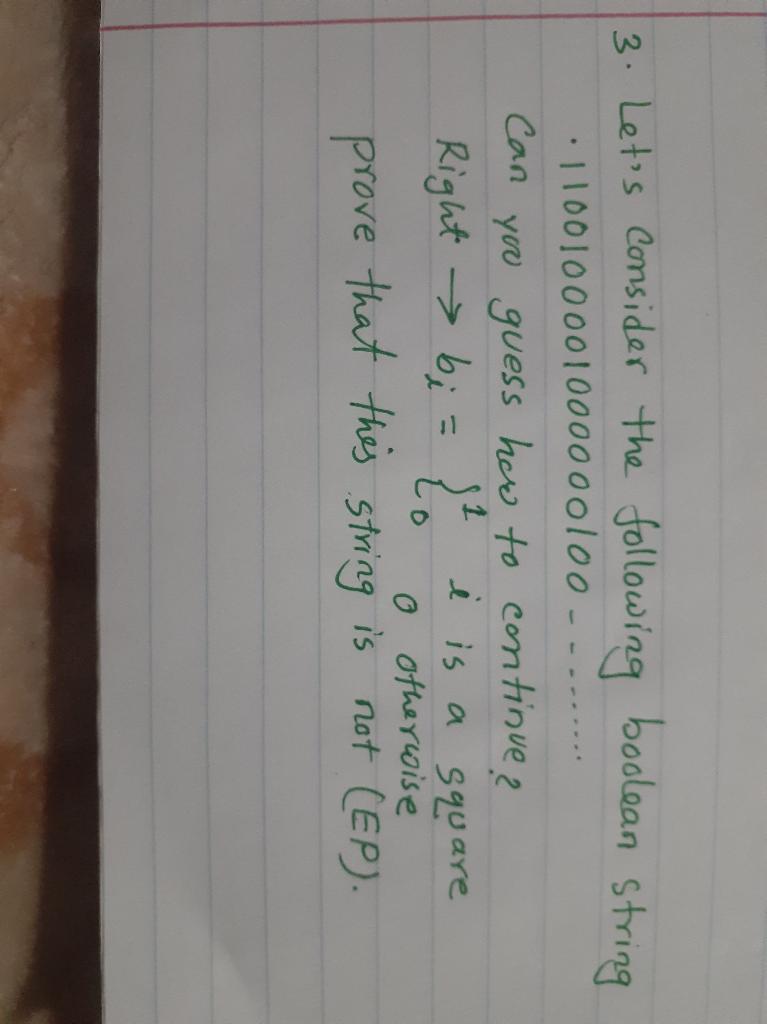 3. Let's consider the following boolean string
.1100100001000000100 - - - ......
Can you guess how to continue?
Right → bi = { 1 i is a square
0 0 otherwise
prove that this string is not (EP).